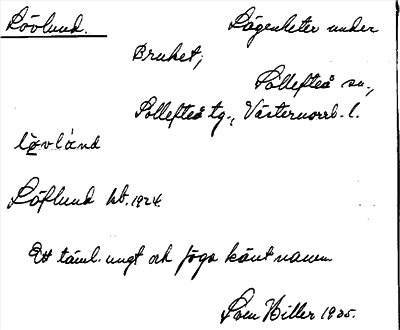 Lövlund. Lägenheter under
Bruket,
Sollefteå sn.,
Sollefteå tg., Västernorrl. l.
lö̀vlánd
Löflund kb. 1924.
Ett täml. ungt och föga känt namn.
1935.